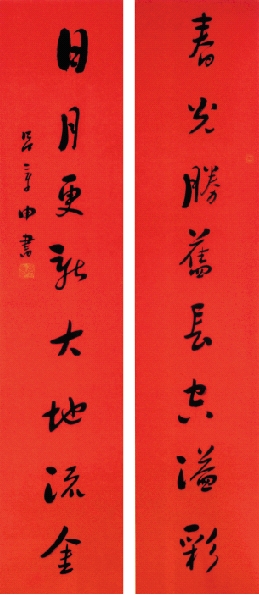 春光勝舊長空溢彩
日月更新大地流金
書